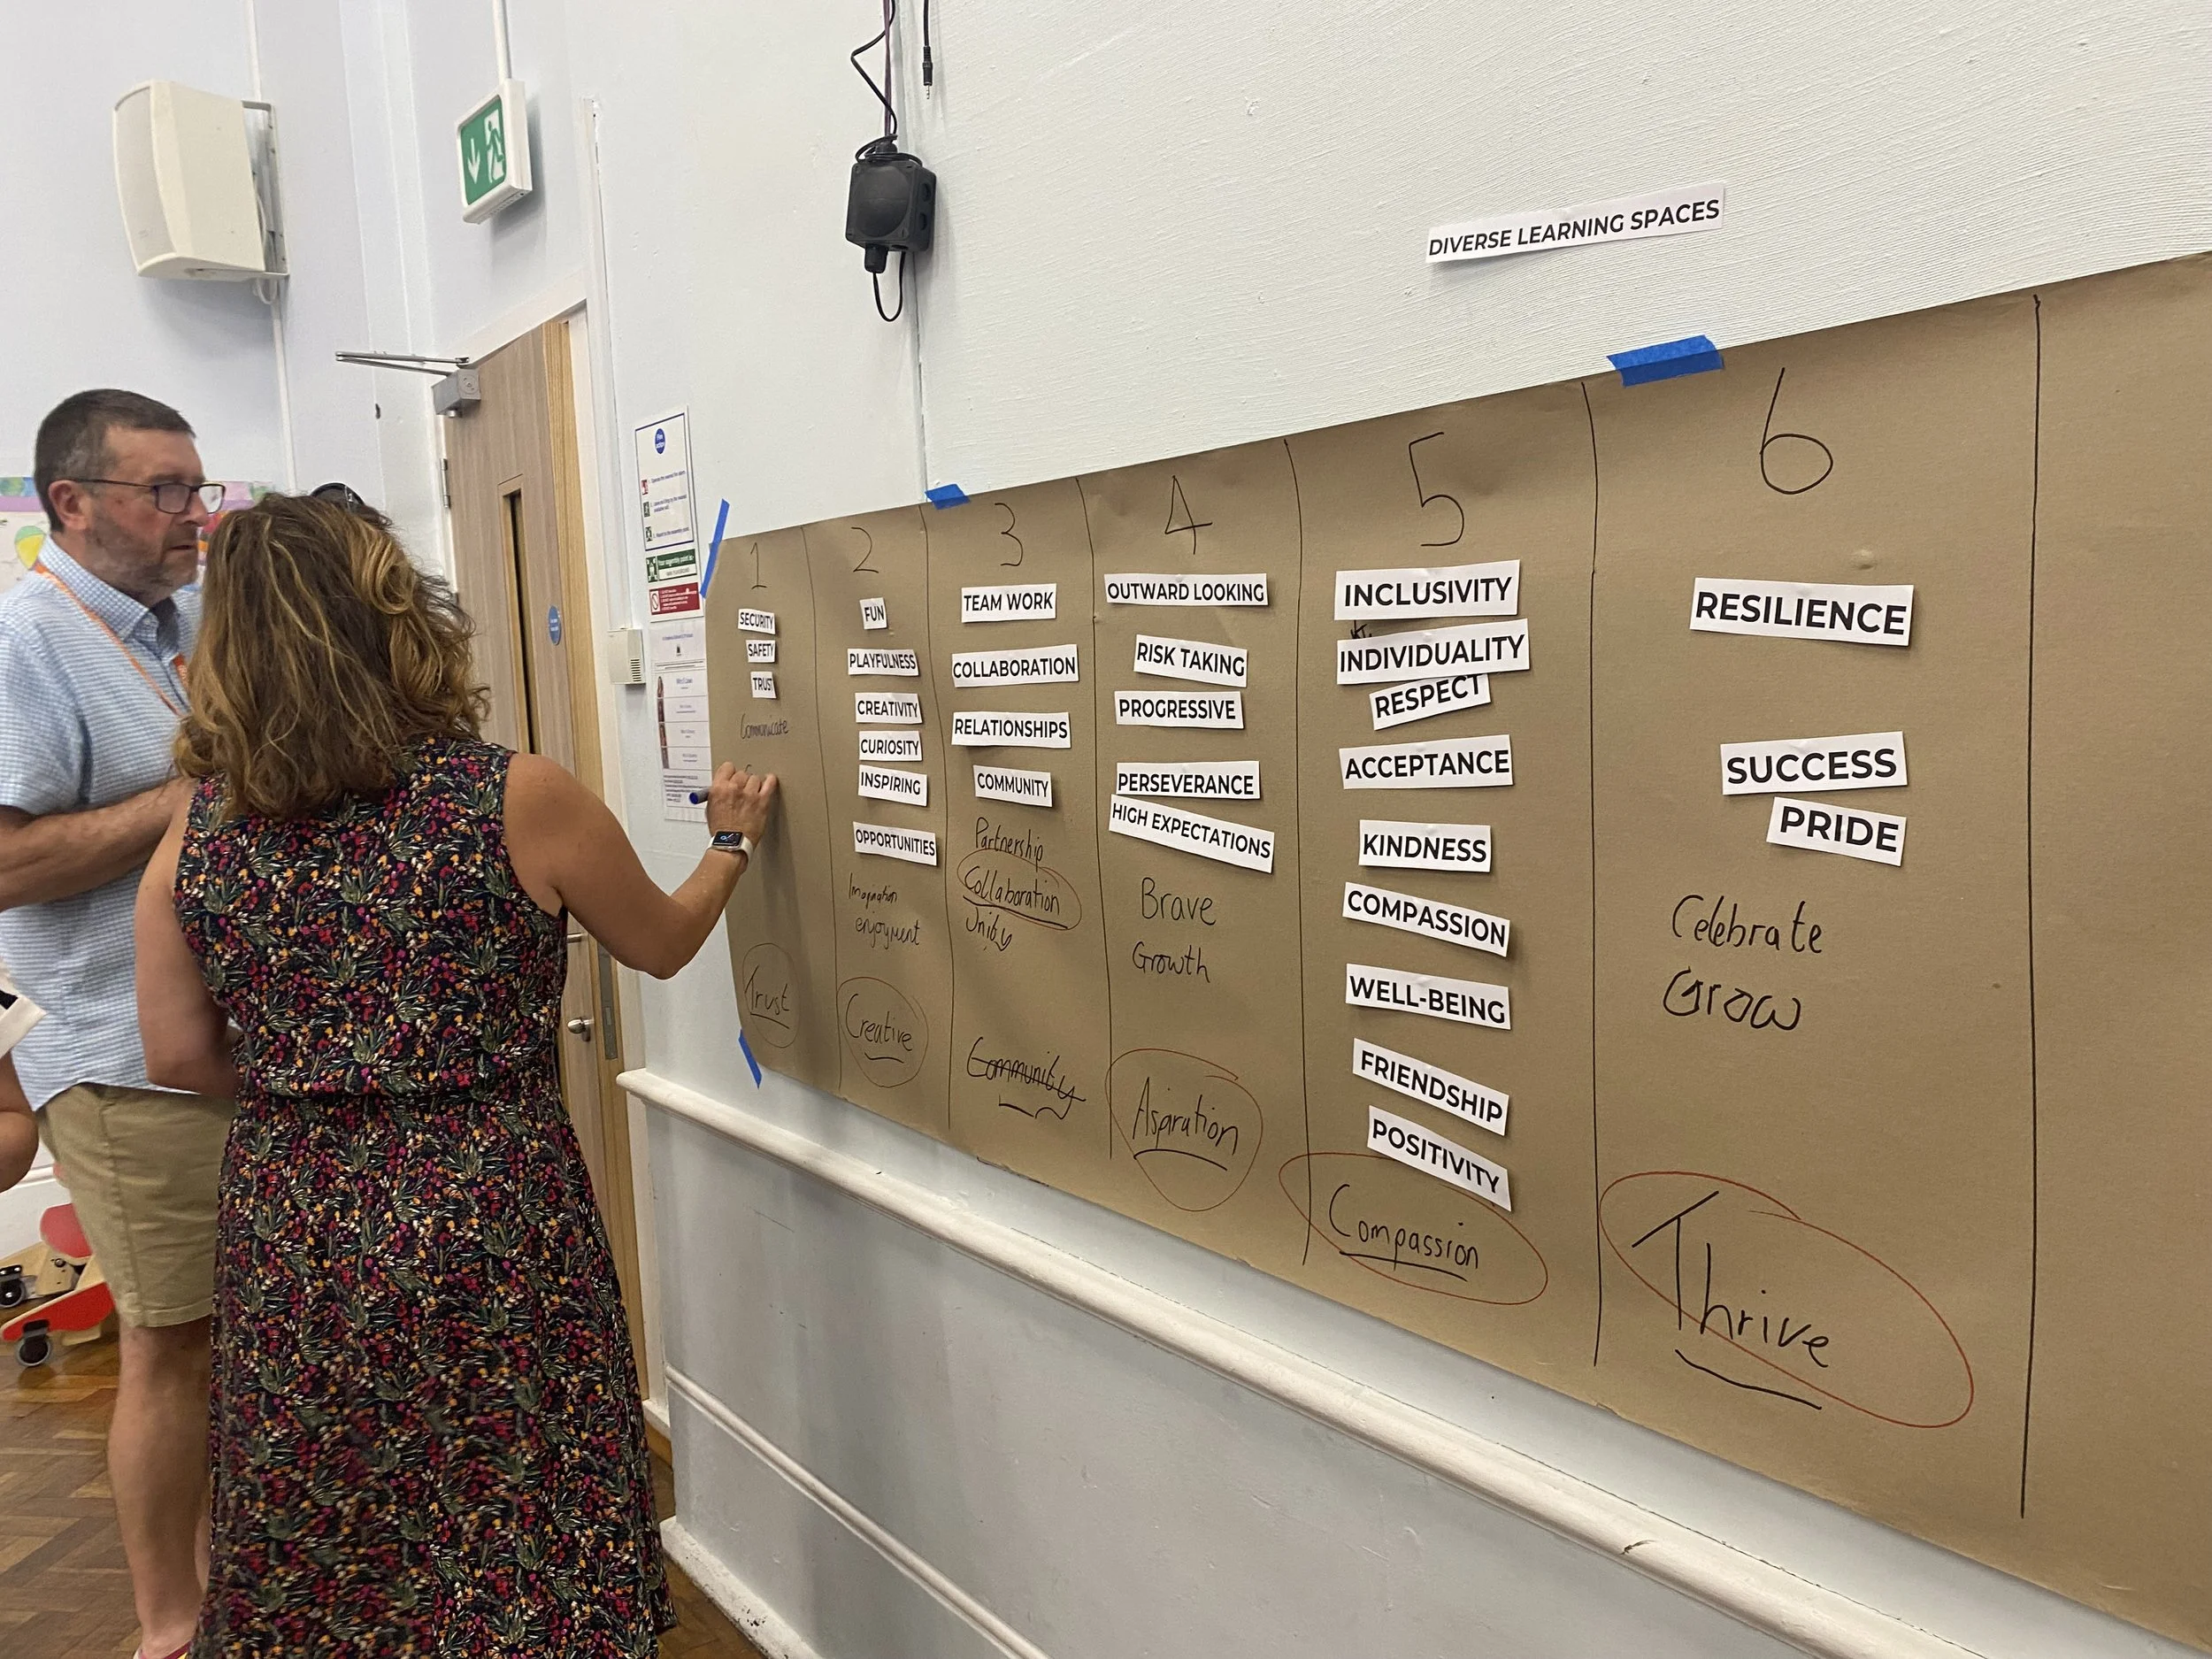 DIVERSE LEARNING SPACES
1
SECURITY
SAFETY
TRUST
Communicate
Trust
2
FUN
PLAYFULNESS
CREATIVITY
CURIOSITY
INSPIRING
OPPORTUNITIES
Imagination
enjoyment
Creative
3
TEAM WORK
COLLABORATION
RELATIONSHIPS
COMMUNITY
Partnership
Collaboration
Unity
Community
4
OUTWARD LOOKING
RISK TAKING
PROGRESSIVE
PERSEVERANCE
HIGH EXPECTATIONS
Brave
Growth
Aspiration
5
INCLUSIVITY
INDIVIDUALITY
RESPECT
ACCEPTANCE
KINDNESS
COMPASSION
WELL-BEING
FRIENDSHIP
POSITIVITY
Compassion
6
RESILIENCE
SUCCESS
PRIDE
Celebrate
Grow
Thrive